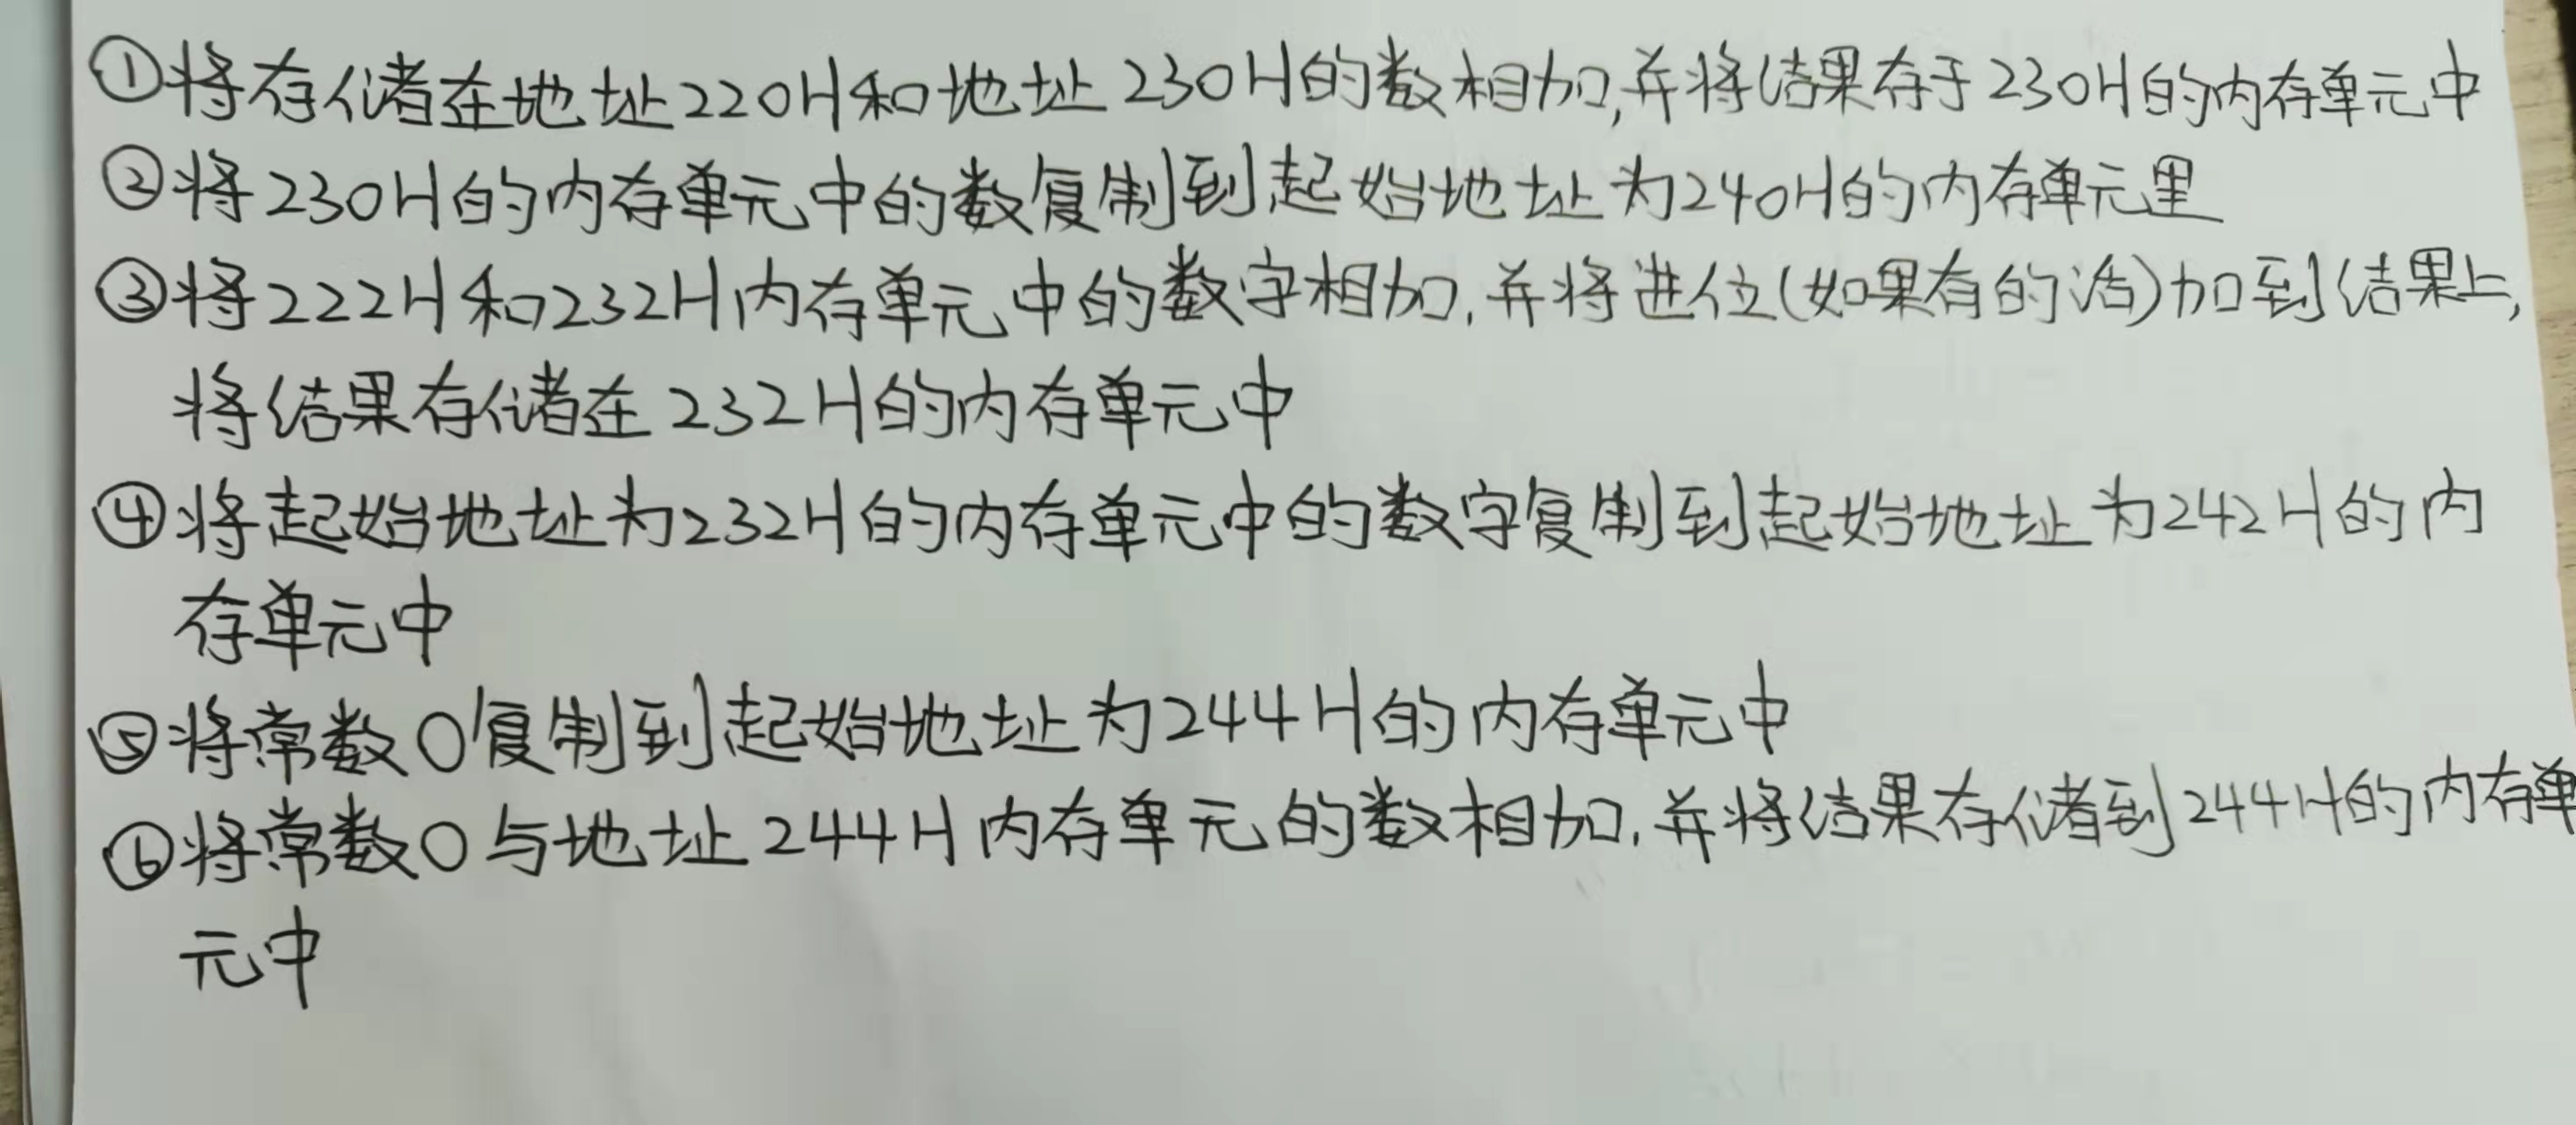 ①将存储在地址220H和地址230H的数相加,并将结果存于230H的内存单元中
②将230H的内存单元中的数复制到起始地址为240H的内存单元里
③将222H和232H内存单元中的数字相加,并将进位(如果有的话)加到结果上,
将结果存储在232H的内存单元中
④将起始地址为232H的内存单元中的数字复制到起始地址为242H的内
存单元中
⑤将常数0复制到起始地址为244H的内存单元中
⑥将常数0与地址244H内存单元的数相加,并将结果存储到244H的内存单
元中